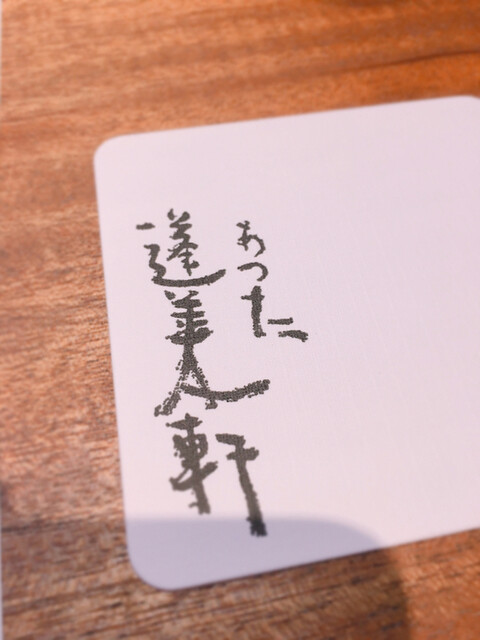 あつた
蓬莱軒